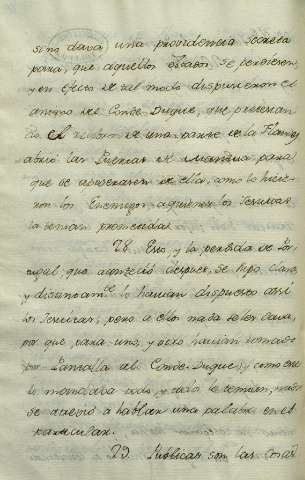 se no dava una providencia secreta
para, que aquellos Estados, se perdiesen,
y en efecto de tal modo dispusieron el
animo del Conde-Duque, que
do el de una parte de la
abrio las Puertas de Mantua para
que se apoderasen de ella, como lo hicie-
ron los Enemigos aquienes los Jesuitas
la tenian prometida.
28. Esto, y la perdida de Por-
tugal que acaeció despues, se supo claro,
y distincamte. lo havian dispuesto assi
los Jesuitas, pero a ellos nada se les dava,
por que, para uno, y otro havian tomado
por Pantalla al Conde-Duque, y como este
lo mandaba todo, y todos le temian, nadie
se atrevió a hablar una palabra en el
particular.
29. Publicas son las cosas